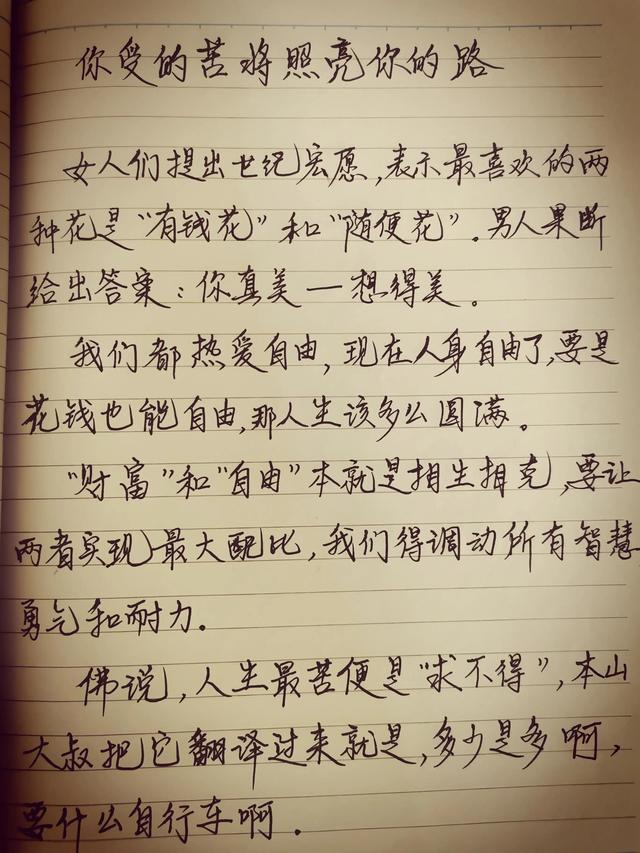 你受的苦将照亮你的路
女人们提出世纪宏愿,表示最喜欢的两
种花是“有钱花”和“随便花”。男人果断
给出答案:你真美一想得美。
我们都热爱自由,现在人身自由了,要是
花钱也能自由,那人生该多么圆满。
“财富”和“自由”本就是相生相克,要让
两者实现最大配比,我们得调动所有智慧
勇气和耐力。
佛说,人生最苦便是“求不得”,本山
大叔把它翻译过来就是,多少是多啊,
要什么自行车啊。